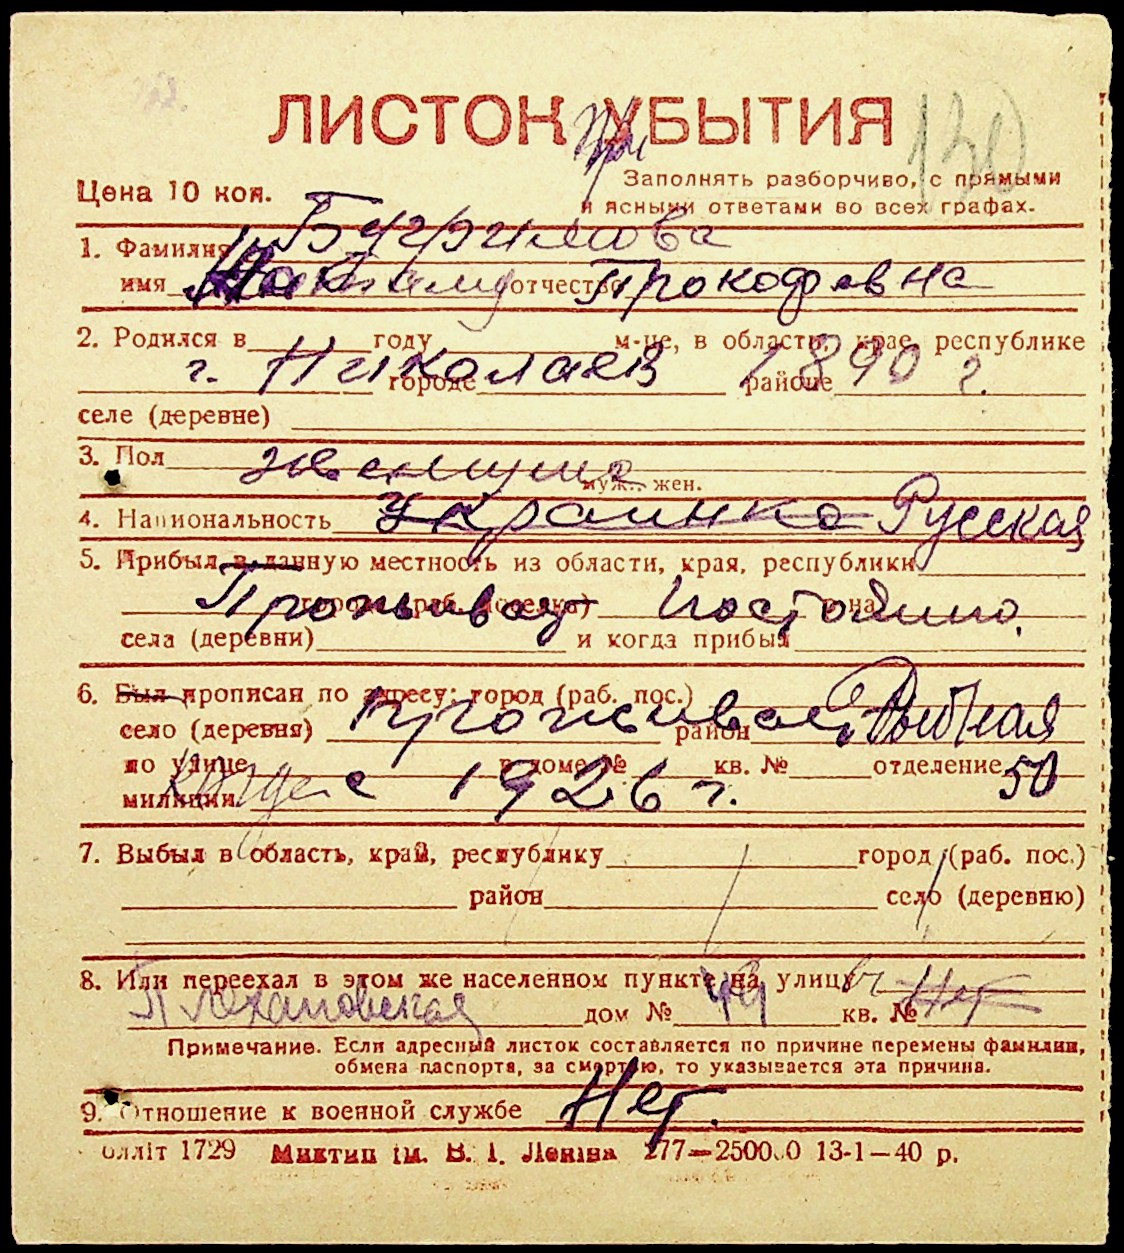 ЛИСТОК УБЫТИЯ
При
130
Цена 10 коп.
Заполнять разборчиво, с прямыми
и ясными ответами во всех графах.
1. Фамилия Бугримова
имя отчество Прокофевна
2. Родился в году м-це, в области, крае, республике
г. Николаев городе 1890 г. районе
селе (деревне)
3. Пол женщина
муж., жен.
4. Национальность Украинка Русская
5. Прибыл в данную местность из области, края, республики
города (раб. поселка) Проживает постоянно. р-на
села (деревни) и когда прибыл
6. Был прописан по адресу: город (раб. пос.)
село (деревня) проживает район Рыбная
по улице в доме № кв. № отделение 50
милиции с 1926 г.
7. Выбыл в область, край, республику город (раб. пос.)
район село (деревню)
8. Или переехал в этом же населенном пункте на улицу
Плехановская дом № 44 кв. № Нет
Примечание. Если адресный листок составляется по причине перемены фамилии,
обмена паспорта, за смертью, то указывается эта причина.
9. Отношение к военной службе Нет.
олліт 1729 Миктип ім. В. І. Леніна 277—25000 13-1—40 р.